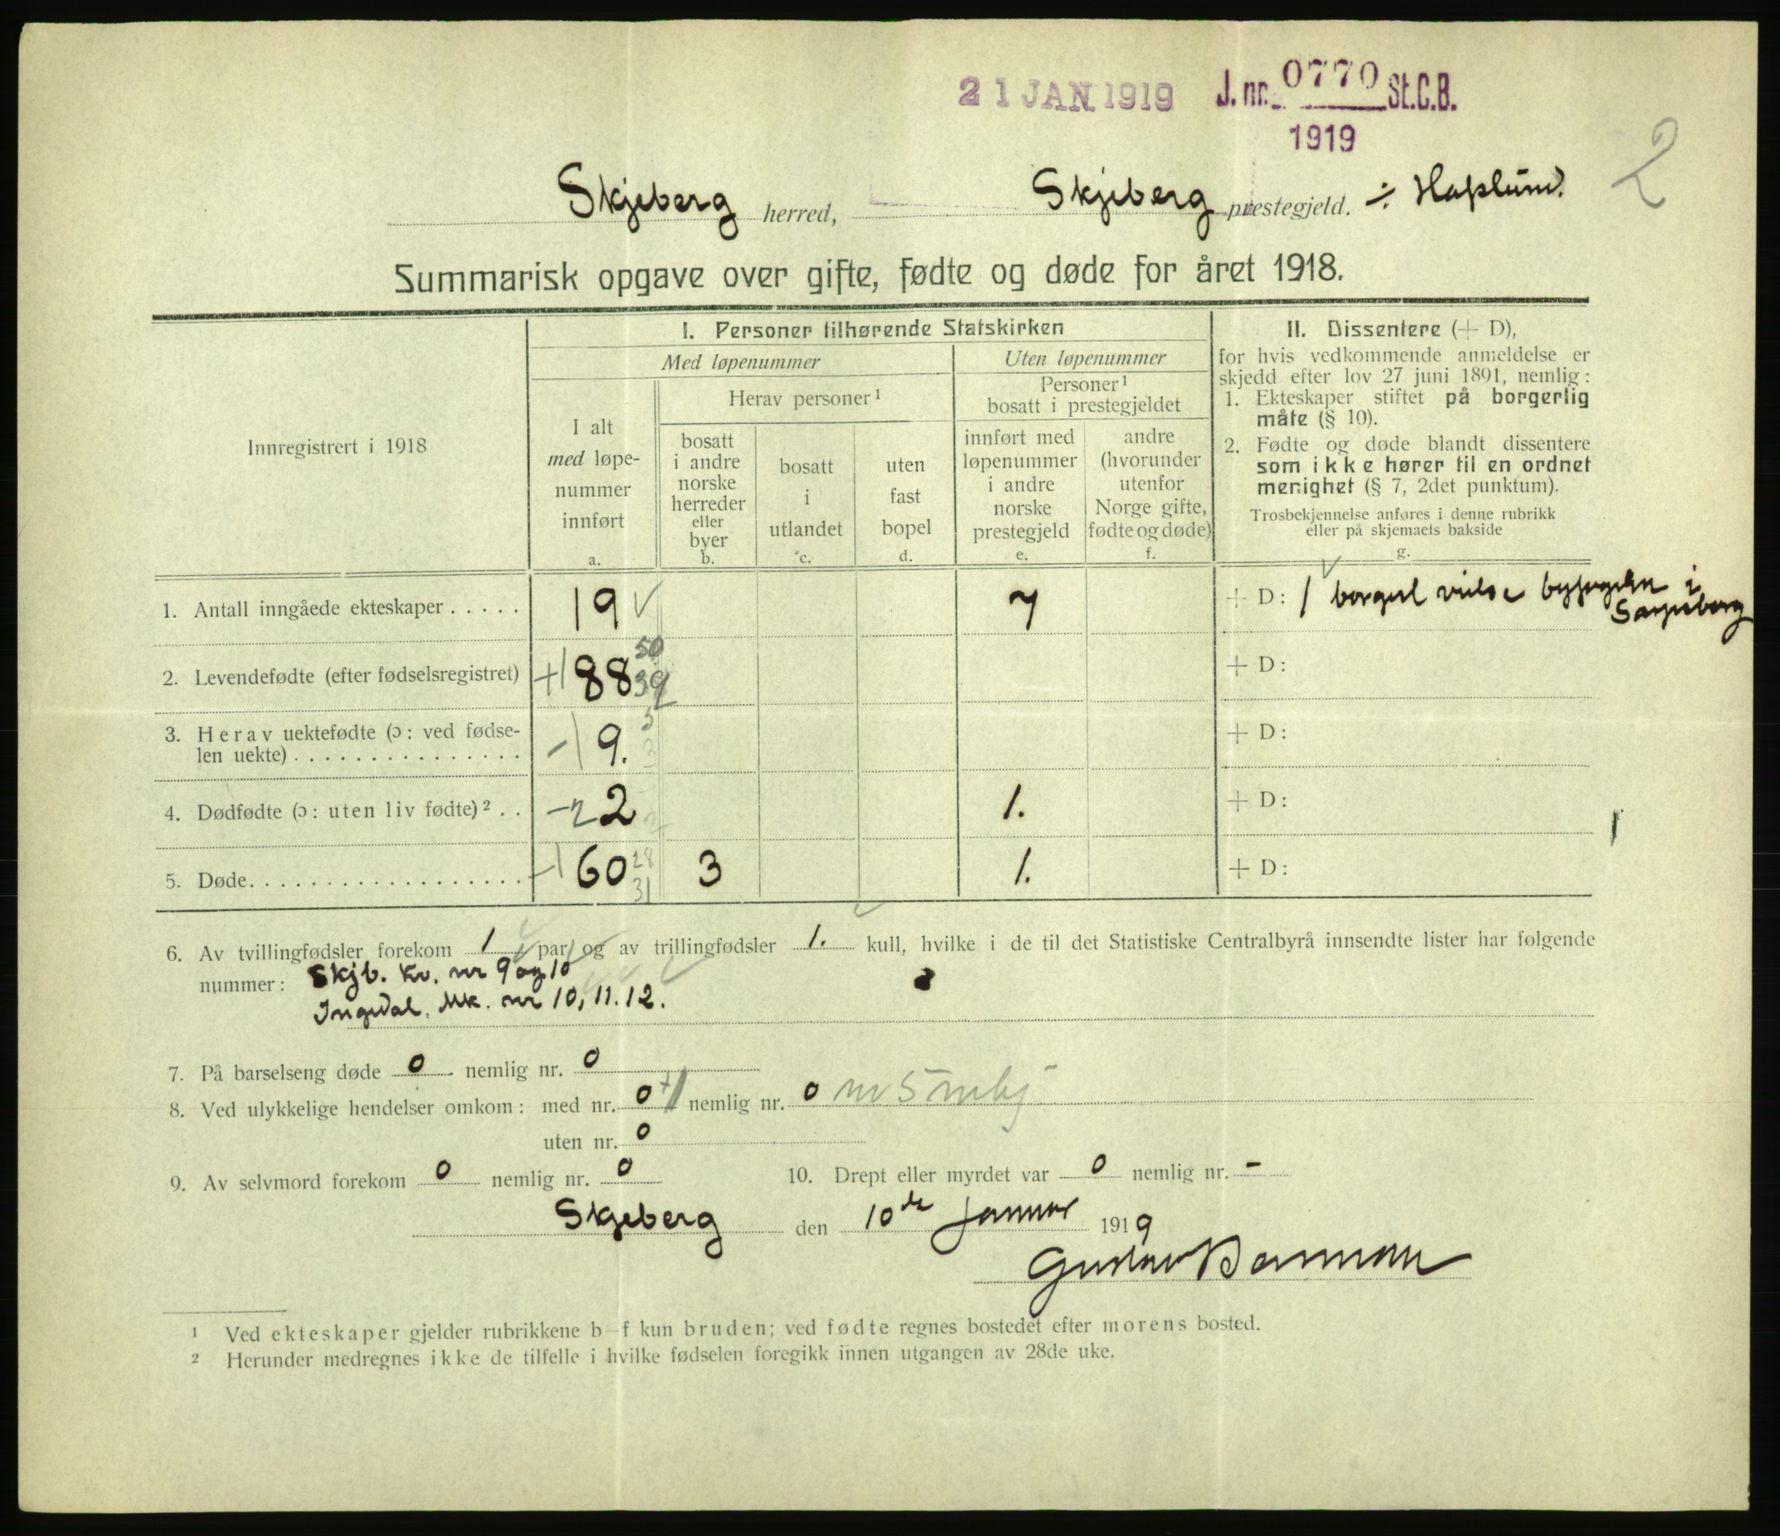 21 JAN. 1919 J. nr. 0770 St.C.B.
1919
2
Skjeberg herred, Skjeberg prestegjeld. ÷ Hafslund.
Summarisk opgave over gifte, fødte og døde for året 1918.
Innregistrert i 1918
I. Personer tilhørende Statskirken
Med løpenummer
Uten løpenummer
I alt
med løpe-
nummer
innført
a.
Herav personer ¹
bosatt
i andre
norske
herreder
eller
byer
b.
bosatt
i
utlandet
c.
uten
fast
bopel
d.
Personer ¹
bosatt i prestegjeldet
innført med
løpenummer
i andre
norske
prestegjeld
e.
andre
(hvorunder
utenfor
Norge gifte,
fødte og døde)
f.
II. Dissentere (+ D),
for hvis vedkommende anmeldelse er
skjedd efter lov 27 juni 1891, nemlig:
1. Ekteskaper stiftet på borgerlig
måte (§ 10).
2. Fødte og døde blandt dissentere
som ikke hører til en ordnet
menighet (§ 7, 2det punktum).
Trosbekjennelse anføres i denne rubrikk
eller på skjemaets bakside
g.
1. Antall inngåede ekteskaper . . . . . 19 √ 7 + D: 1 borgerl vielse byfogden i
Sarpsborg
2. Levendefødte (efter fødselsregistret) +1 88 50 39 + D:
3. Herav uektefødte (ɔ: ved fødse-
len uekte) . . . . . . . . . . . . . . . -1 9. 5 3 + D:
4. Dødfødte (ɔ: uten liv fødte) ² . . -2 2 1. + D:
5. Døde. . . . . . . . . . . . . . . . . . . -1 60 28 31 3 1. + D:
6. Av tvillingfødsler forekom 1 par og av trillingfødsler 1. kull, hvilke i de til det Statistiske Centralbyrå innsendte lister har følgende
nummer: Skjb. Kv. nr 9 og 10
Ingedal. Mk. nr 10, 11. 12.
7. På barselseng døde 0 nemlig nr. 0
8. Ved ulykkelige hendelser omkom: med nr. 0 +1 nemlig nr. 0 nr 5
uten nr. 0
9. Av selvmord forekom 0 nemlig nr. 0 10. Drept eller myrdet var 0 nemlig nr. -
Skjeberg den 10de januar 1919
Gustav
¹ Ved ekteskaper gjelder rubrikkene b–f kun bruden; ved fødte regnes bostedet efter morens bosted.
² Herunder medregnes ikke de tilfelle i hvilke fødselen foregikk innen utgangen av 28de uke.